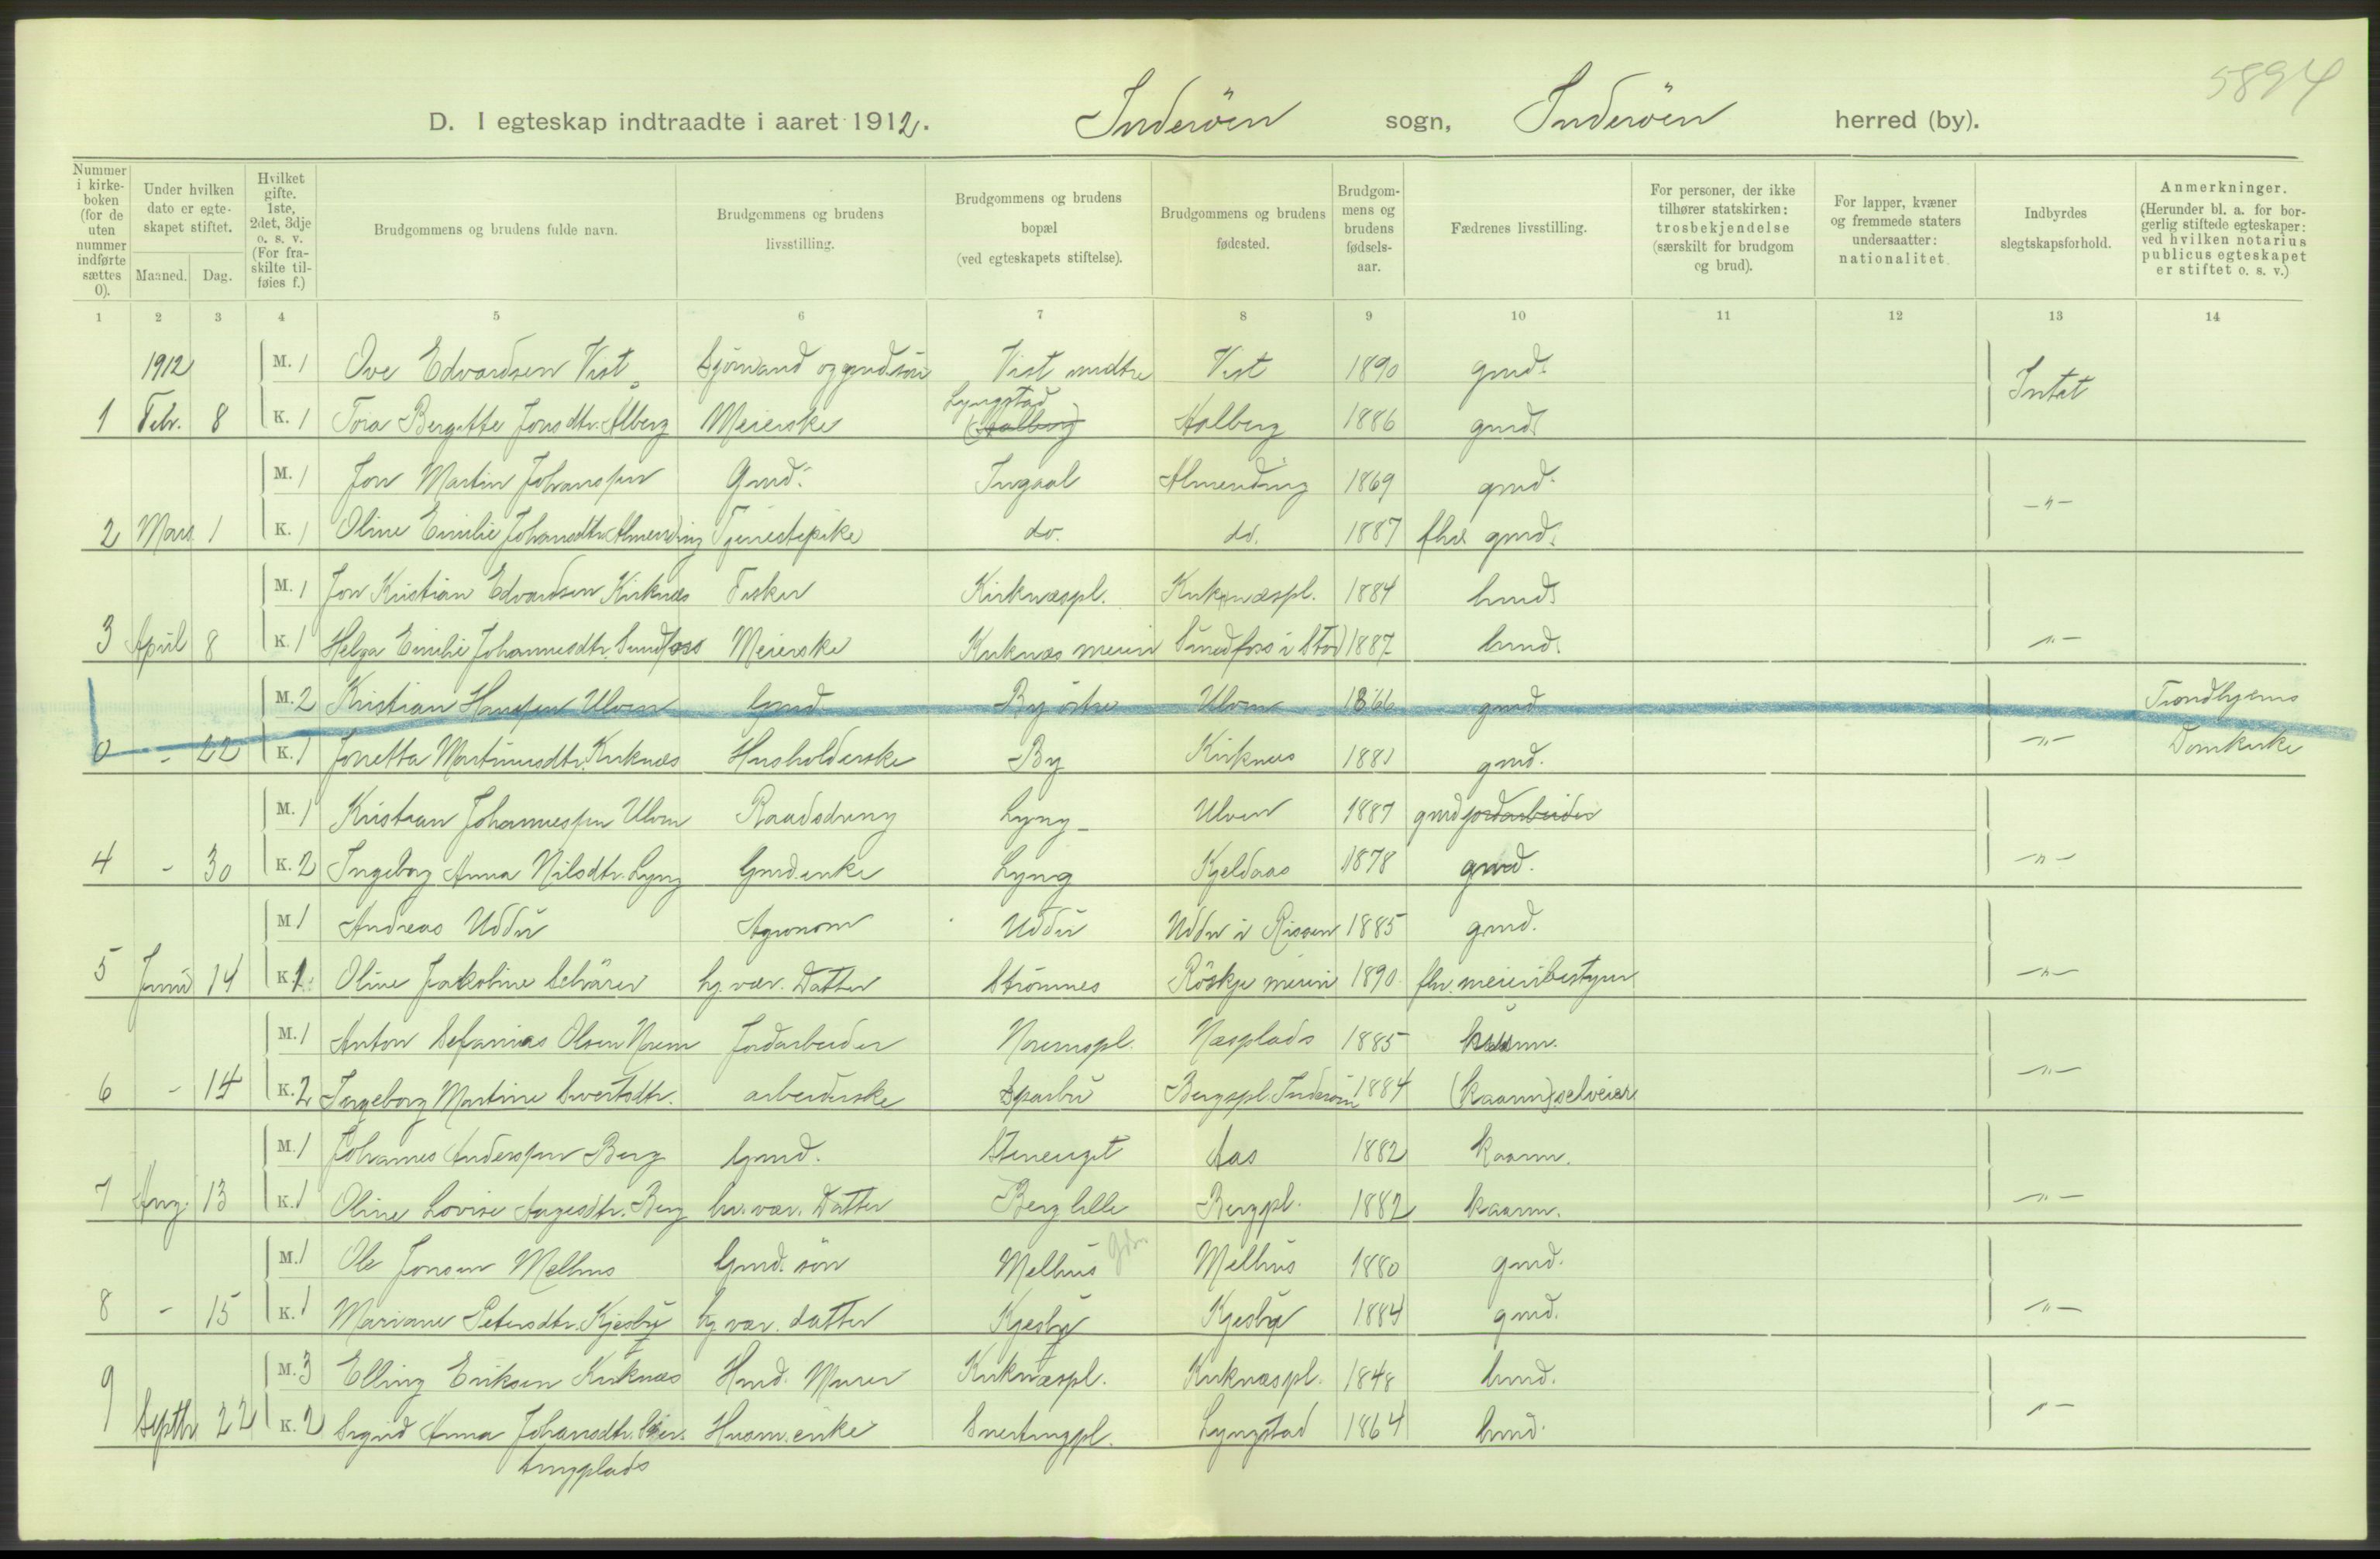 5894
D. I egteskap indtraadte i aaret 1912. Inderöen sogn, Inderöen herred (by).
Nummer i kirkeboken (for de uten nummer indførte sættes 0). Under hvilken dato er egteskapet stiftet. Maaned. Dag. Hvilket gifte. 1ste, 2det, 3dje o. s. v. (For fraskilte tilføies f.) Brudgommens og brudens fulde navn. Brudgommens og brudens livsstilling. Brudgommens og brudens bopæl (ved egteskapets stiftelse). Brudgommens og brudens fødested. Brudgommens og brudens fødselsaar. Fædrenes livsstilling. For personer, der ikke tilhører statskirken: trosbekjendelse (særskilt for brudgom og brud). For lapper, kvæner og fremmede staters undersaatter: nationalitet. Indbyrdes slegtskapsforhold. Anmerkninger. (Herunder bl. a. for borgerlig stiftede egteskaper: ved hvilken notarius publicus egteskapet er stiftet o. s. v.)
1 2 3 4 5 6 7 8 9 10 11 12 13 14
1912 M. 1 Ove Edvardsen Vist Sjömand og gmd. sön Vist midtre Vist 1890 gmd. Intet
Lyngstad
1 Febr. 8 K. 1 Tora Bergitte Jonsdtr. Alberg Meierske (Aalberg) Aalberg 1886 gmd.
M. 1 Jon Martin Johanssen Gmd. Ingaal Almending 1869 gmd. -"-
2 Mars 1 K. 1 Oline Emilie Johansdtr. Almending Tjenestepike do. do. 1887 fhv. gmd.
M. 1 Jon Kristian Edvardsen Kirknæs Fisker Kirknæspl. Kirknæspl. 1884 hmd.
3 April 8 K. 1 Helga Emilie Johannesdtr. Sundfoss Meierske Kirknæs meieri Sundfoss i Stod 1887 hmd. -"-
M. 2 Kristian Hanssen Ulven Gmd. By östre Ulven 1866 gmd. Trondhjems
0 - 22 K. 1 Jonetta Martinusdtr. Kirknæs Husholderske By Kirknæs 1881 gmd. -"- Domkirke
M. 1 Kristian Johannessen Ulven Raadsdreng Lyng Ulven 1887 gmd jordarbeider
4 - 30 K. 2 Ingeborg Anna Nilsdtr. Lyng Gmd.enke Lyng Kjeldaas 1878 gmd. -"-
M 1 Andreas Uddu Agronom Uddu Uddu i Rissen 1885 gmd.
5 Juni 14 K 1 Oline Jakobine Schärer hj. vær. Datter Strömnes Röskje meieri 1890 fhv. meieribestyrer -"-
M. 1 Anton Sefanias Olsen Norem Jordarbeider Noremspl. Næsplads 1885 husm.
6 - 14 K. 2 Ingeborg Martine Sivertsdtr. arbeiderske Sparbu Bergspl. Inderöen 1884 (kaarm) selveier -"-
M. 1 Johannes Anderssen Berg Gmd. Stenenget Aas 1882 kaarm.
7 Aug. 13 K. 1 Oline Lovise Aagesdtr. Berg hj. vær. Datter Berg lille Bergpl. 1882 kaarm. -"-
M. 1 Ole Jonsen Melhus Gmd. sön Melhus Melhus 1880 gmd.
8 - 15 K. 1 Mariane Petersdtr. Kjesby hj. vær. datter Kjesby Kjesby 1884 gmd. -"-
M. 3 Elling Eriksen Kirknæs Hmd. Murer Kirknæspl. Kirknæspl. 1848 hmd.
9 Septbr 22 K. 2 Sigrid Anna Johansdtr. Sner- Husm.enke Snertingpl. Lyngstad 1864 hmd. "-
tingplads